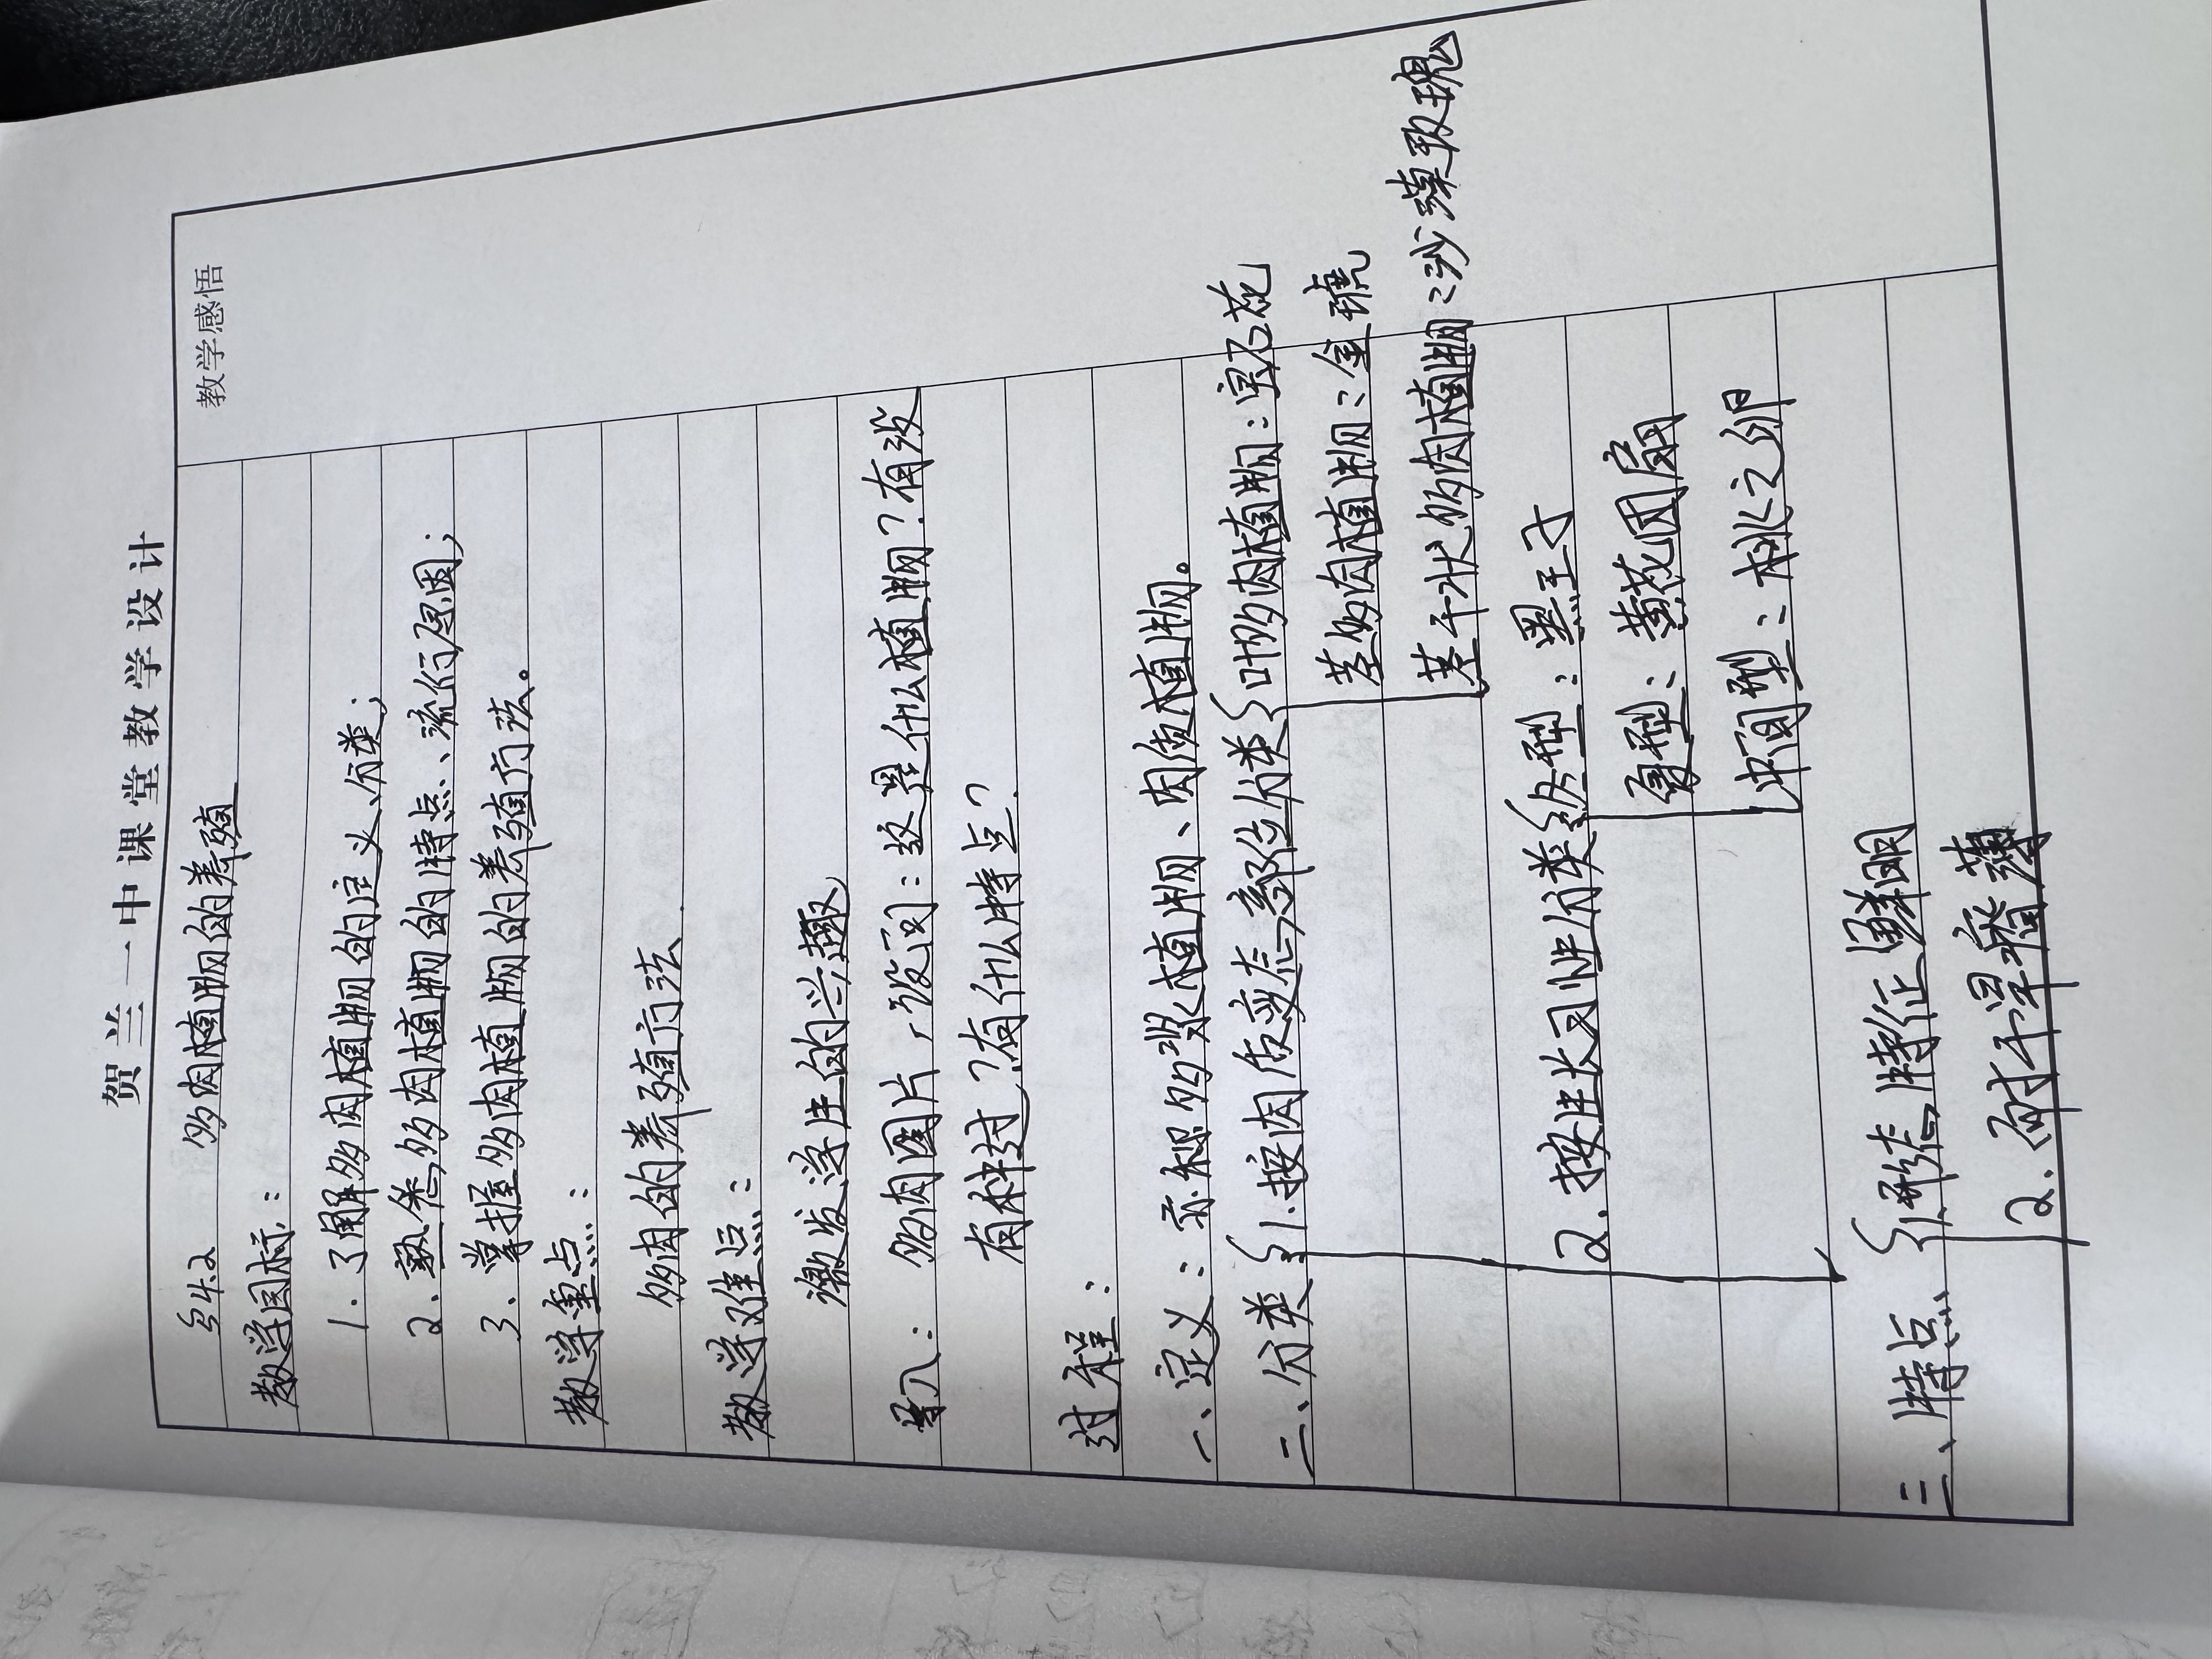 贺兰一中课堂教学设计
教学感悟
§4.2 多肉植物的养殖
教学目标：
1. 了解多肉植物的定义、分类；
2. 熟悉多肉植物的特点、流行原因；
3. 掌握多肉植物的养殖方法。
教学重点：
多肉的养殖方法.
教学难点：
激发学生的兴趣
导入：多肉图片，设问：这是什么植物？有没
有种过？有什么特点？
过程：
一、定义：亦称多浆植物、肉质植物。
二、分类 1.按肉质变态部位分类 叶多肉植物：宝石花
茎多肉植物：金琥
茎干状多肉植物：沙漠玫瑰
2. 按生长习性分类 冬型：黑王子
夏型：黄花团扇
中间型：桃之卵
三、特点 1.形态特征鲜明
2. 耐干旱瘠薄